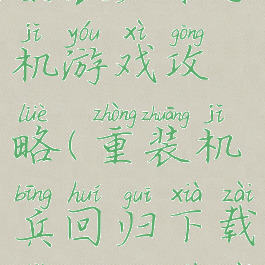 jī yóu xì gōng
机游戏攻
lüè zhòng zhuāng jī
略(重装机
bīng huí guī xià zài
兵回归下载